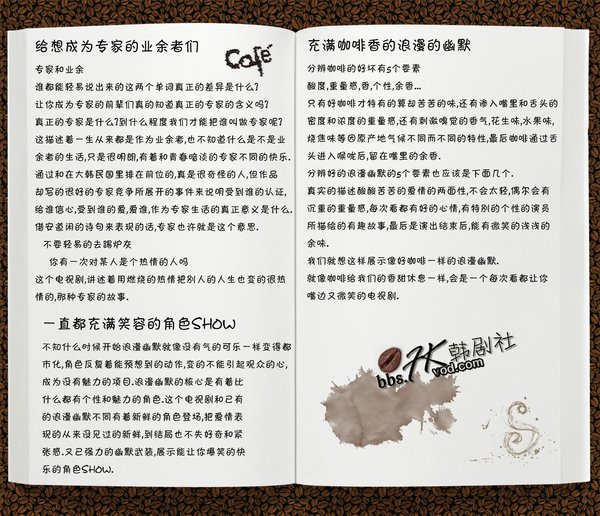 给想成为专家的业余老们
Café
专家和业余
谁都能轻易说出来的这两个单词真正的差异是什么?
让你成为专家的前辈们真的知道真正的专家的含义吗?
真正的专家是什么?到什么程度我们才能把谁叫做专家呢?
这描述着一生从来都是作为业余老,也不知道什么是不是业
余老的生活,只是很明朗,有着和青春暗谈的专家不同的快乐.
通过和在大韩民国里排在前位的,真是很奇怪的人,但作品
却写的很好的专家竞争所展开的事件来说明受到谁的认证,
给谁信心,受到谁的爱,爱谁,作为专家生活的真正意义是什么.
借安道闲的诗句来表现的话,专家也许就是这个意思.
不要轻易的去踢炉灰
你有一次对某人是个热情的人吗
这个电视剧,讲述着用燃烧的热情把别人的人生也变的很热
情的,那种专家的故事.
一直都充满笑容的角色SHOW
不知什么时候开始浪漫幽默就像没有气的可乐一样变得都
市化,角色反复着能预想到的动作,变的不能引起观众的心,
成为没有魅力的项目.浪漫幽默的核心是有着比
什么都有个性和魅力的角色.这个电视剧和已有
的浪漫幽默不同有着新鲜的角色登场,把爱情表
现的从来没见过的新鲜,到结局也不失好奇和紧
张感.又已强力的幽默武装,展示能让你爆笑的快
乐的角色SHOW.
充满咖啡香的浪漫的幽默
分辨咖啡的好坏有5个要素
酸度,重量感,香,个性,余香...
只有好咖啡才特有的算却苦苦的味,还有渗入嘴里和舌头的
密度和浓度的重量感,还有刺激嗅觉的香气,花生味,水果味,
烧焦味等因原产地气候不同而不同的特性,最后咖啡通过舌
头进入喉咙后,留在嘴里的余香.
分辨好的浪漫幽默的5个要素也应该是下面几个.
真实的描述酸酸苦苦的爱情的两面性,不会太轻,偶尔会有
沉重的重量感,每次看都有好的心情,有特别的个性的演员
所描绘的有趣故事,最后是演出结束后,能有微笑的浅浅的
余味.
我们就想这样展示像好咖啡一样的浪漫幽默.
就像咖啡给我们的香甜休息一样,会是一个每次看都让你
嘴边又微笑的电视剧.
TK韩剧社
bbs.vod.com
S